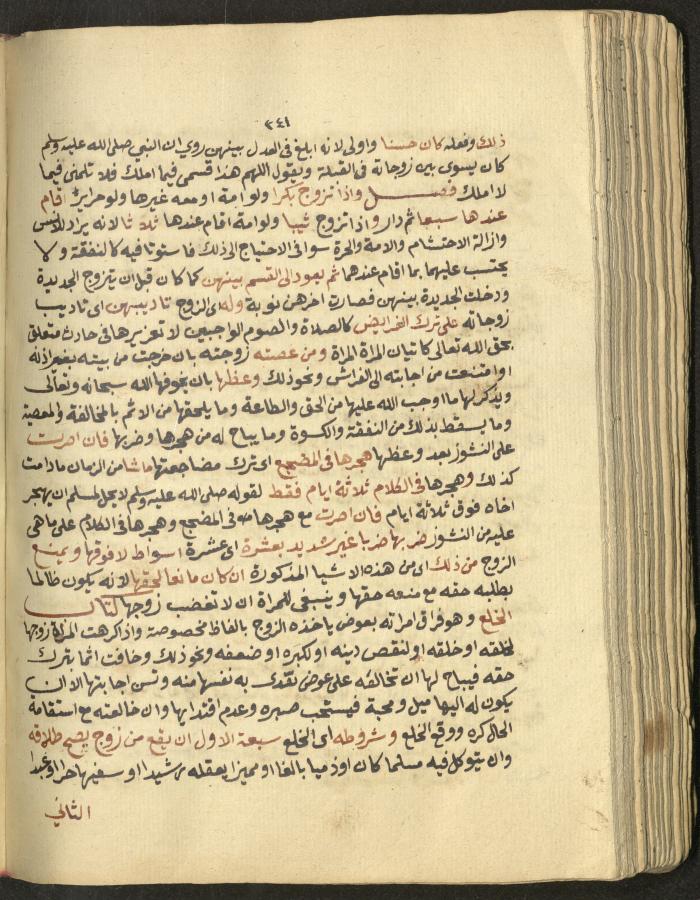 ٣٤١
ذلك وفعله كان حسنا واولى لانه ابلغ فى العدل بينهن روي ان النبي صلى الله عليه وسلم
كان يسوى بين زوجاته فى القبلة ويقول اللهم هذا قسمى فيما املك فلا تلمنى فيما
لا املك فصل واذا تزوج بكرا ولو امة او معه غيرها ولو حراير اقام
عندها سبعا ثم دار واذا تزوج ثيبا ولو امة اقام عندها ثلاثا لانه يراد للانس
وازالة الاحتشام والامة والحرة سوا فى الاحتياج الى ذلك فاستوتا فيه كالنفقة ولا
يحتسب عليهما بما اقام عندهما ثم يعود الى القسم بينهن كما كان قبل ان يتزوج الجديدة
ودخلت الجديدة بينهن فصارت اخرهن نوبة وله اى الزوج تاديبهن اى تاديب
زوجاته على ترك الفرايض كالصلاة والصوم الواجبين لا تعزيرها فى حادث متعلق
بحق الله تعالى كاتيان المراة المراة ومن عصته زوجته بان خرجت من بيته بغير اذنه
او امتنعت من اجابته الى الفراش ونحو ذلك وعظها بان يخوفها الله سبحانه وتعالى
ويذكر لها ما اوجب الله عليها من الحق والطاعة وما يلحقها من الاثم بالمخالفة والمعصية
وما يسقط بذلك من النفقة والكسوة وما يباح له من هجرها وضربها فان اصرت
على النشوز بعد وعظها هجرها فى المضجع اى ترك مضاجعتها ما شا من الزمان ما دامت
كذلك وهجرها فى الكلام ثلاثة ايام فقط لقوله صلى الله عليه وسلم لا يحل لمسلم ان يهجر
اخاه فوق ثلاثة ايام فان اصرت مع هجرها فى المضجع وهجرها فى الكلام على ما هى
عليه من النشوز ضربها ضربا غير شديد بعشرة اى عشرة اسواط لا فوقها ويمنع
الزوج من ذلك اى من هذه الاشيا المذكورة ان كان مانعا لحقها لانه يكون ظالما
بطلبه حقه مع منعه حقها وينبغى للمراة ان لا تغضب زوجها كتاب
الخلع وهو فراق امراته بعوض ياخذه الزوج بالفاظ مخصوصة واذا كرهت المراة زوجها
لخلقه او خلقه او لنقص دينه او لكبره او ضعفه ونحو ذلك وخافت اثما بترك
حقه فيباح لها ان تخالعه على عوض تفتدى به نفسها منه وتسن اجابتها الا ان
يكون له اليها ميل ومحبة فيستحب صبره وعدم افتدايها وان خالعته مع استقامة
الحال كره ووقع الخلع وشروطه اى الخلع سبعة الاول ان يقع من زوج يصح طلاقه
وان يتوكل فيه مسلما كان او ذميا بالغا او مميزا يعقله رشيدا او سفيها حرا او عبدا
الثاني